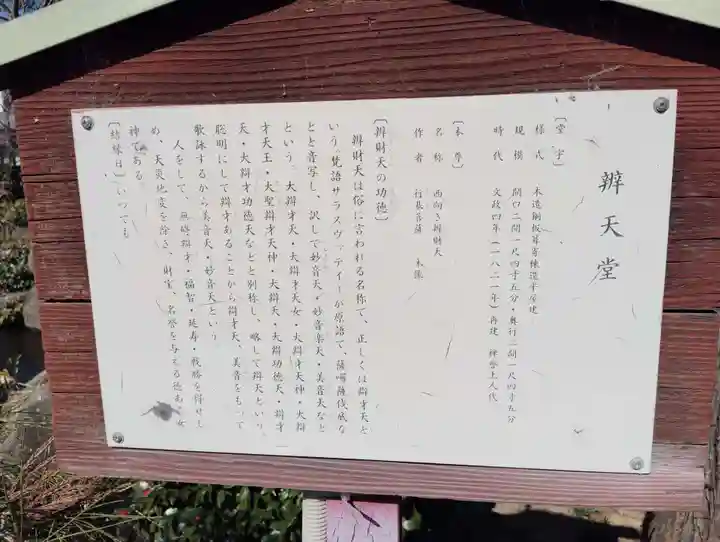 辨天堂
〔堂宇〕
様式 木造銅板葺寄棟造平屋建
規模 間口二間一尺四寸五分・奥行二間一尺四寸五分
時代 文政四年(一八二一年)再建 禅誉上人代
〔本尊〕
名称 西向き辨財天
作者 行基菩薩 木像
〔辨財天の功徳〕
辨財天は俗に言われる名称で、正しくは辯才天と
いう。梵語サラスヴァティーが原語で、薩囉薩伐底な
どと音写し、訳して妙音天・妙音楽天・美音天など
という。大辯才天・大辯才天女・大辯才天神・大辯
才天王・大聖辯才天神・大辯天・大辯功徳天・辯才
天・大辯才功徳天などと別称し、略して辯天という。
聡明にして辯才あることから辯才天、美音をもって
歌詠するから美音天・妙音天という
人をして、無碍辯才・福智・延寿・戦勝を得せし
め、天災地変を除き、財宝、名誉を与える徳ある女
神である。
〔結縁日〕いつでも